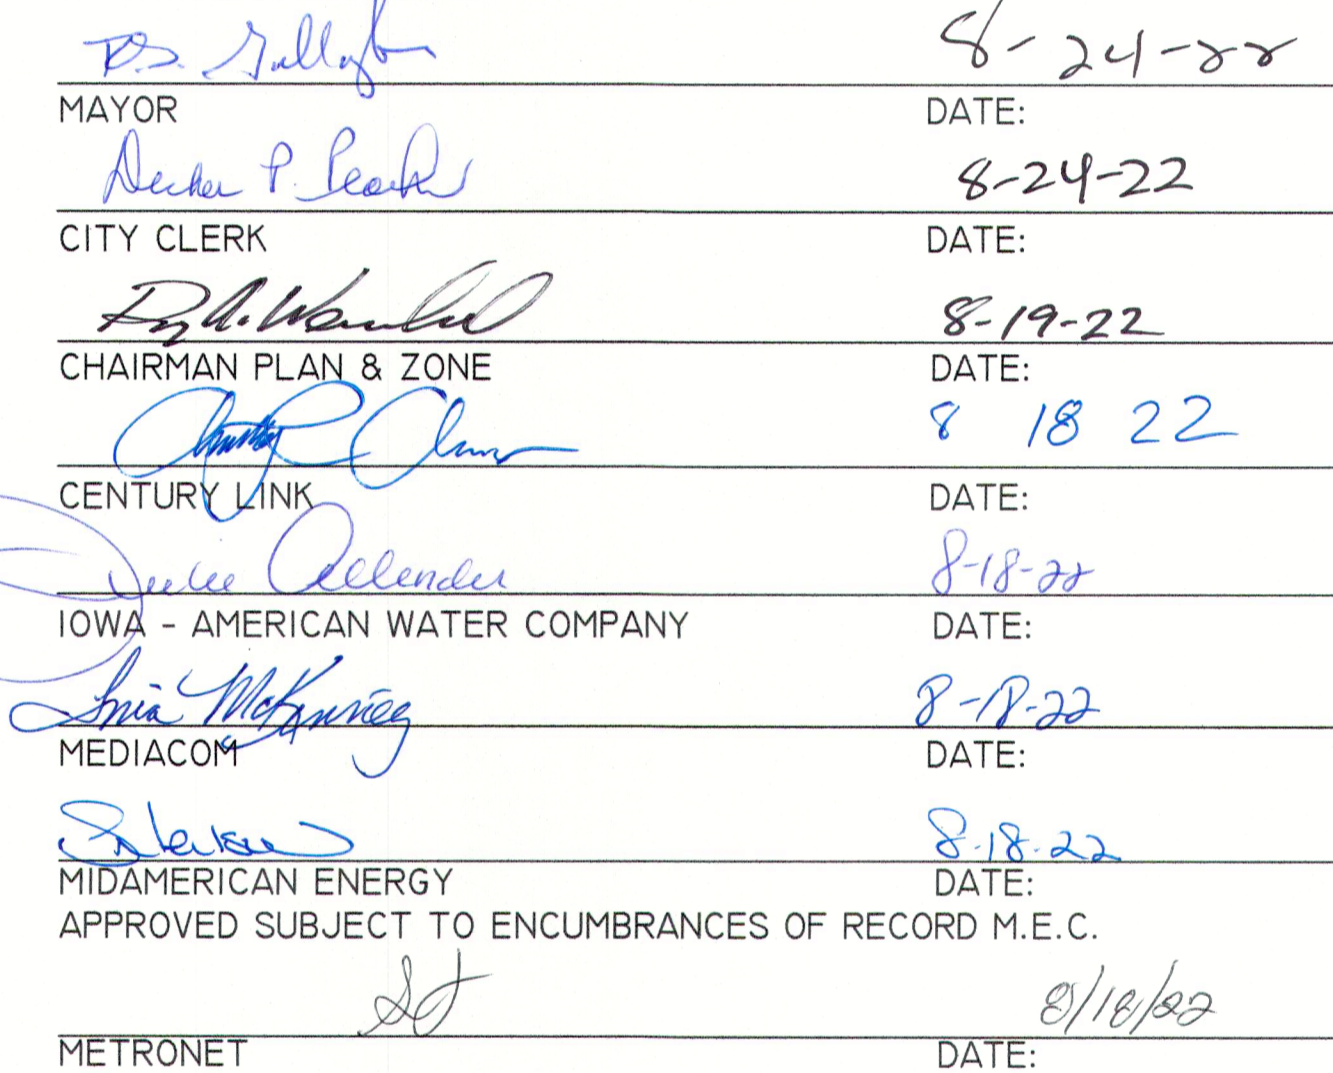 R.S. Gallagher 8-24-22
MAYOR DATE:
Decker P. 8-24-22
CITY CLERK DATE:
8-19-22
CHAIRMAN PLAN & ZONE DATE:
8 18 22
CENTURY LINK DATE:
Julie Allender 8-18-22
IOWA - AMERICAN WATER COMPANY DATE:
McKinney 8-18-22
MEDIACOM DATE:
8-18-22
MIDAMERICAN ENERGY DATE:
APPROVED SUBJECT TO ENCUMBRANCES OF RECORD M.E.C.
8/18/22
METRONET DATE: